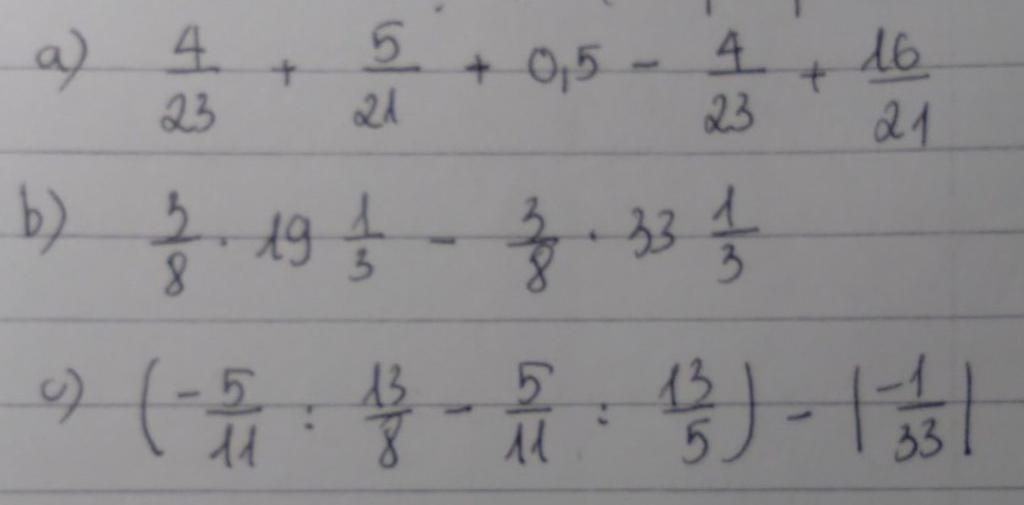 a) 4/23 + 5/21 + 0,5 - 4/23 + 16/21
b) 3/8 . 19 1/3 - 3/8 . 33 1/3
c) (-5/11 : 13/8 - 5/11 : 13/5) - |-1/33|